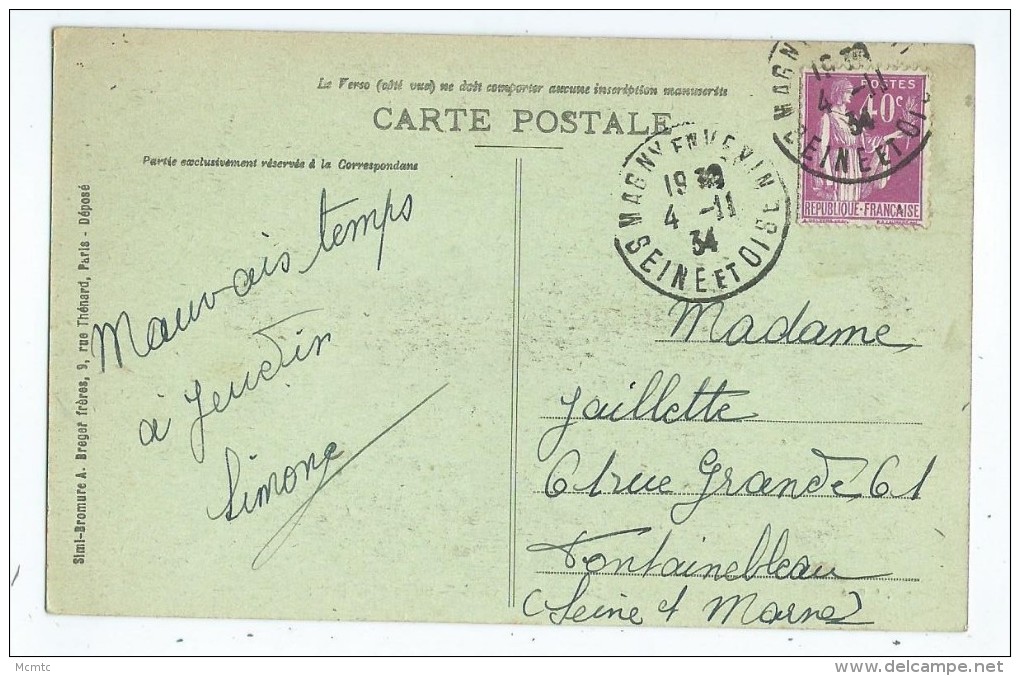 Le Verso (côté vue) ne doit comporter aucune inscription manuscrite
CARTE POSTALE
Partie exclusivement réservée à la Correspondance
Simi-Bromure A. Breger frères, 9, rue Thénard, Paris - Déposé
Mauvais temps
à Jeudin
Simone
MAGNY EN VEXIN
19 30
4 -11
34
SEINE ET OISE
MAGNY
19 30
4 -11
34
SEINE ET OISE
POSTES
40c
REPUBLIQUE-FRANÇAISE
Madame
Jaillette
61 rue Grande 61
Fontainebleau
(Seine et Marne)
Mcmtc
www.delcampe.net